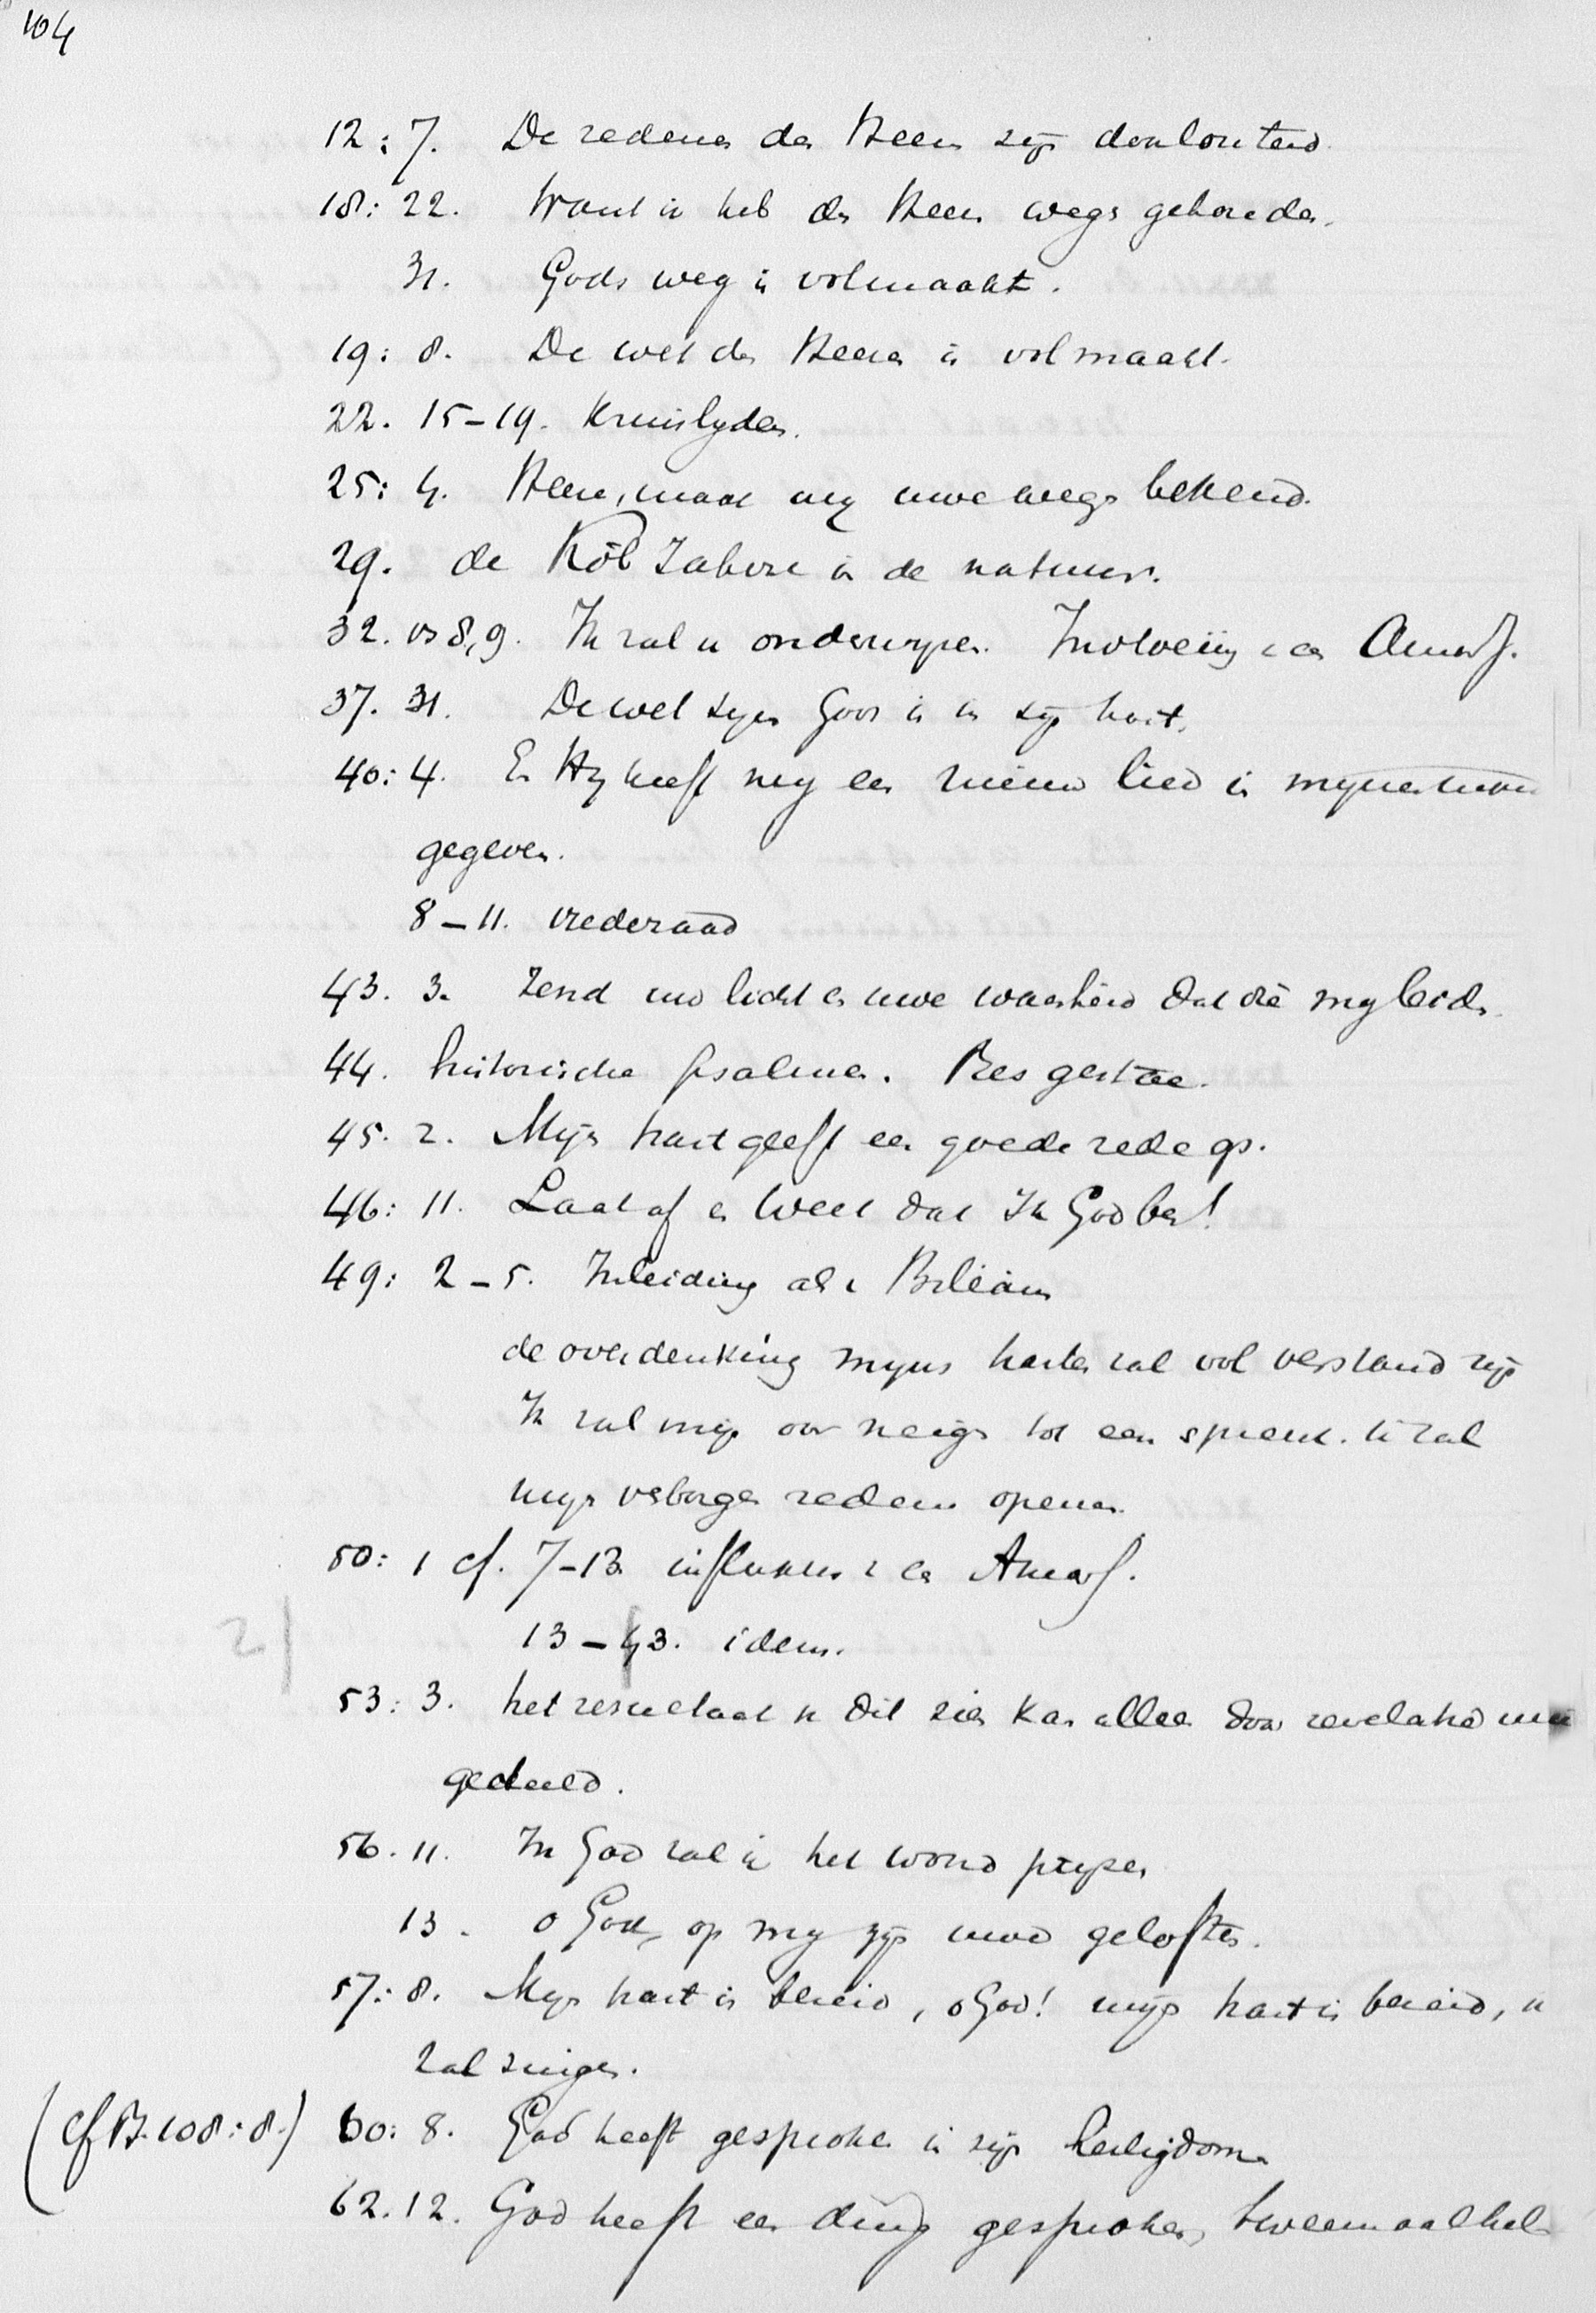 104
12: 7. De redenen des Heeren zijn doorlouterd.
18: 22. Want ik heb des Heeren wegen gehouden.
31. Gods weg is volmaakt.
19: 8. De wet des Heeren is volmaakt.
22. 15-19. Kruislyden.
25: 4. Heere, maak my uwe wegen bekend.
29. de Kôl Jahve in de natuur.
32. vs 8,9. Ik zal u onderwyzen.
37. 31. De wet zyns Gods is in zijn hart.
40: 4. En Hy heeft my een nieuw lied in mynen mond
gegeven.
8-11. vrederaad
43. 3. Zend uw licht en uwe waarheid dat die my leiden.
44. historische psalmen. Res gestae.
45. 2. Mijn hart geeft een goede rede op.
46: 11. Laat af en weet dat Ik God ben!
49: 2-5. Inleiding als Bileam
de overdenking myns harten zal vol verstand zijn
Ik zal mijn oor neigen tot een spreuk. ik zal
mijn verborgen redenen openen.
50: 1 cf. 7-13
13-43. idem.
2
53: 3. het resultaat van dit zien kan alleen door revelatie
56. 11. In God zal ik het woord pryzen
13. o God, op my zijn uwe geloften.
57: 8. Myn hart is bereid, o God! mijn hart is bereid, ik
zal zingen.
(Cf Ps. 108: 8.) 60: 8. God heeft gesproken in zijn heiligdom
62. 12. God heeft een ding gesproken, tweemaal heb